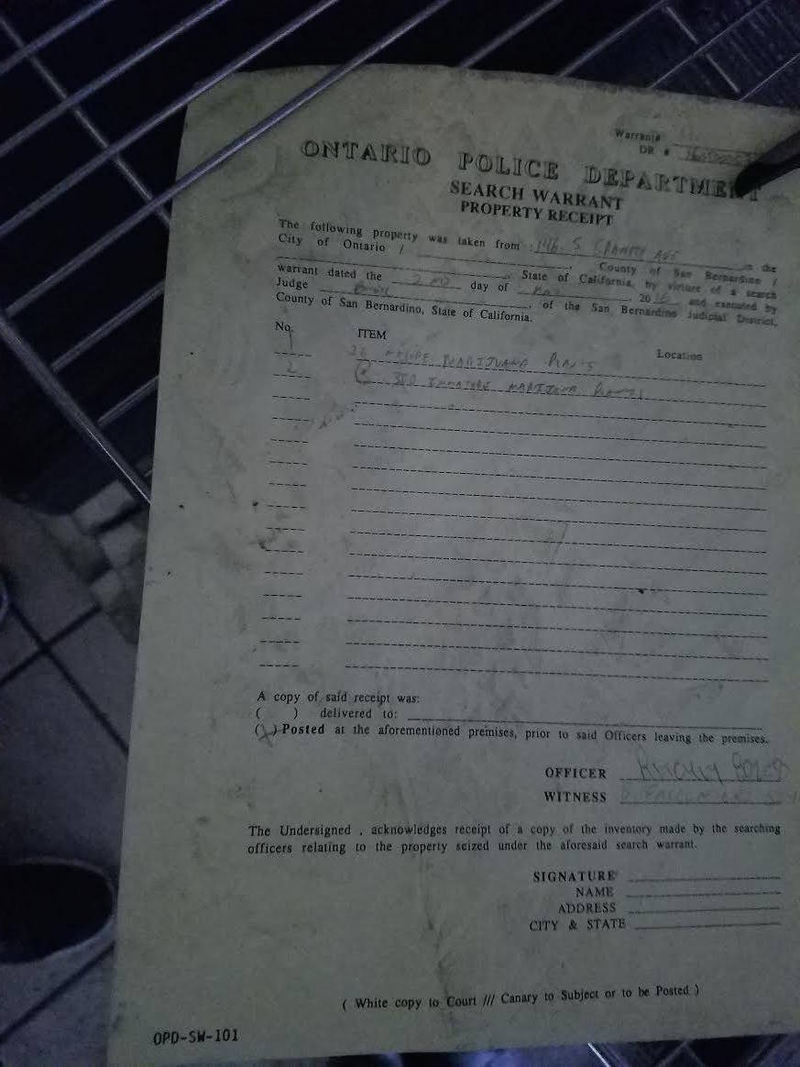 Warrant#
DR #
ONTARIO POLICE DEPARTMENT
SEARCH WARRANT
PROPERTY RECEIPT
The following property was taken from S in the
City of Ontario / , County of San Bernardino /
, State of California, by virtue of a search
warrant dated the 2 ND day of 20 and executed by
Judge , of the San Bernardino Judicial District,
County of San Bernardino, State of California.
No. ITEM Location
1 MARIJUANA PLANTS
2 IMMATURE MARIJUANA
A copy of said receipt was:
( ) delivered to:
(X) Posted at the aforementioned premises, prior to said Officers leaving the premises.
OFFICER
WITNESS
The Undersigned , acknowledges receipt of a copy of the inventory made by the searching
officers relating to the property seized under the aforesaid search warrant.
SIGNATURE
NAME
ADDRESS
CITY & STATE
( White copy to Court /// Canary to Subject or to be Posted )
OPD-SW-101